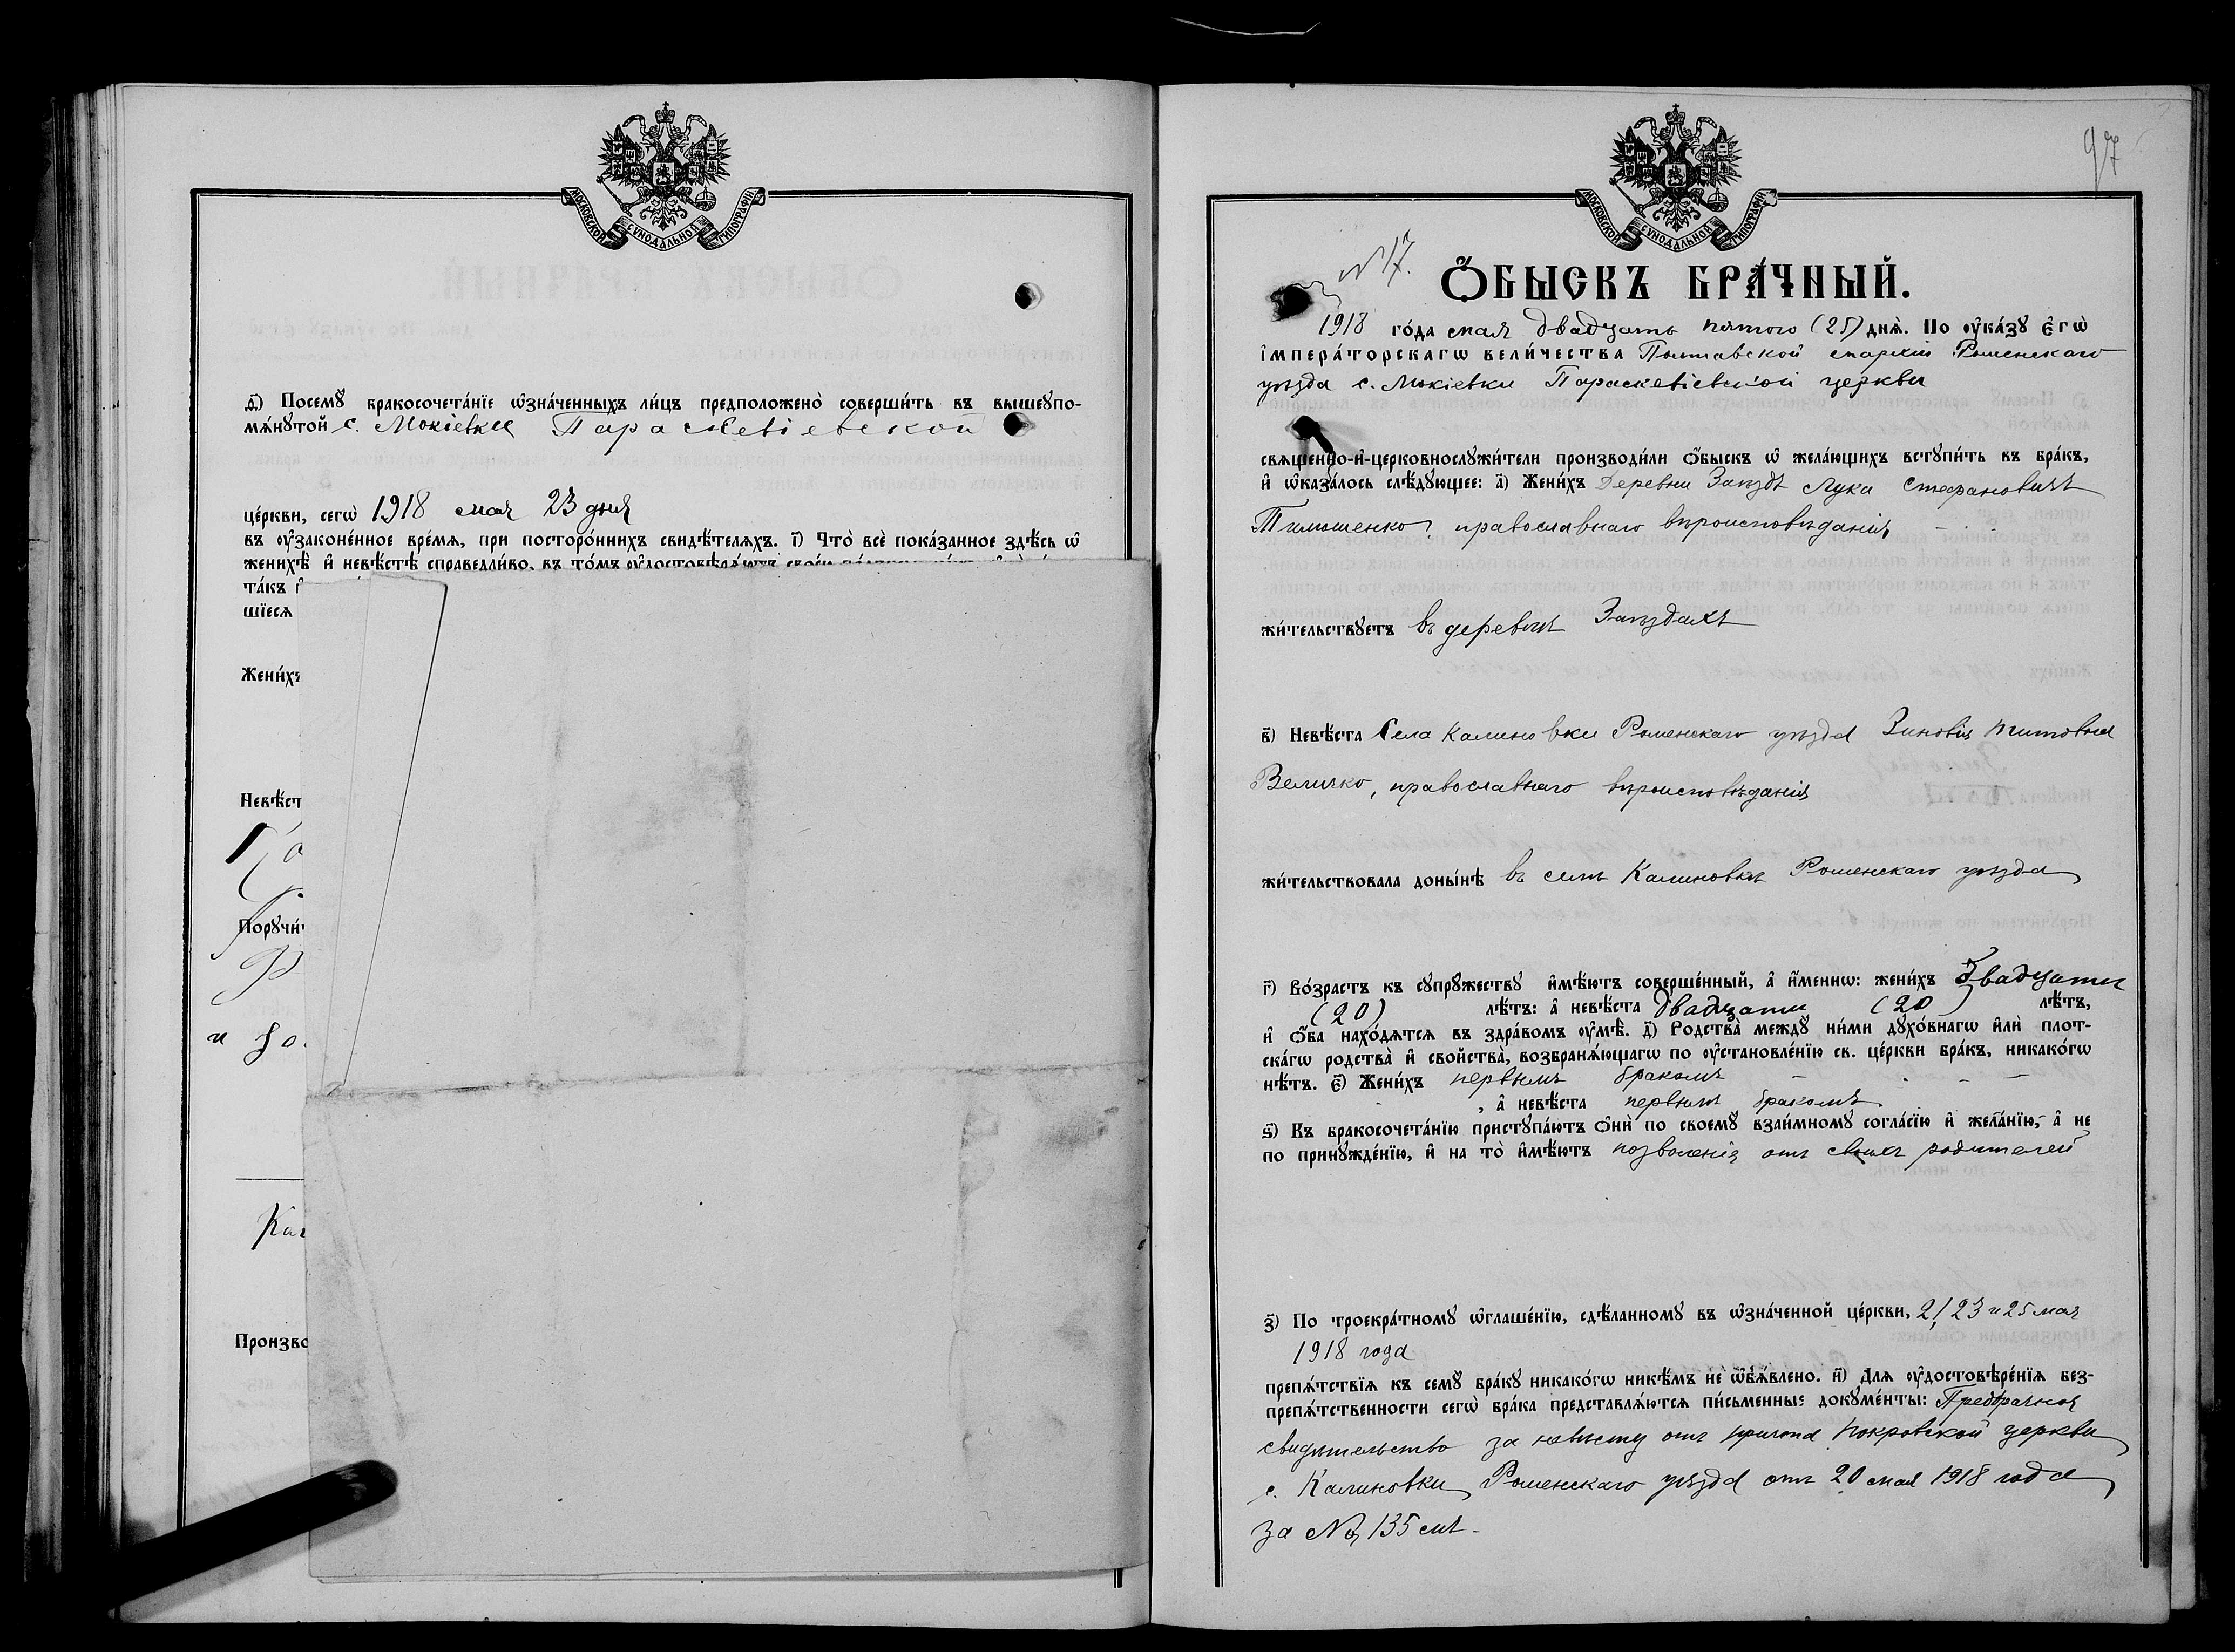 МОСКОВСКОЙ СѴНОДАЛЬНОЙ ТИПОГРАФІИ
д҃) Посемꙋ бракосочета́нїе ѡ҆зна́ченныхъ ли́цъ предположено̀ соверши́ть въ вышеꙋпо-
мѧ́нꙋтой с. Мокіевки Параскевіевской
це́ркви, сегѡ̀ 1918 мая 23 дня
въ ᲂу҆зако́не́нное вре́мя, при посторо́ннихъ свидѣ́телѧхъ. і҃) Что̀ всѐ пока́занное здѣ́сь ѡ҆
женихѣ̀ и҆ невѣ́стѣ справедли́во, въ то́мъ ᲂу҆достовѣрѧ́ютъ свое́ю
та́къ
шїесѧ
Жени́хъ
Невѣ́ст
Порꙋчи́
и
Произво
97
МОСКОВСКОЙ СѴНОДАЛЬНОЙ ТИПОГРАФІИ
№ 17.
Ѻ҆БЫСКЪ БРА́ЧНЫЙ.
1918 го́да мая двадцать пятого (25) днѧ̀. По ᲂу҆ка́зꙋ є҆гѡ̀
і҆мпера́торскагѡ вели́чества Полтавской епархіи Роменскаго
уѣзда с. Мокіевки Параскевіевской церкви
свѧщенно-и҆-церковнослꙋжи́тели производи́ли ѻ҆́быскъ ѡ҆ жела́ющихъ встꙋпи́ть въ бра́къ,
и҆ ѡ҆каза́лось слѣ́дꙋющее: а҃) Жени́хъ Деревни Заѣздъ Лука Стефановичъ
Тимошенко, православнаго вѣроисповѣданія,
жи́тельствꙋетъ въ деревнѣ Заѣздахъ
в҃) Невѣ́ста Села Калиновки Роменскаго уѣзда Зиновія Титовна
Величко, православнаго вѣроисповѣданія
жи́тельствовала доны́нѣ въ селѣ Калиновкѣ Роменскаго уѣзда
г҃) Во́зрастъ къ сꙋпрꙋжествꙋ и҆мѣ́ютъ соверше́нный, а҆ и҆́меннѡ: жени́хъ двадцати
(20) лѣ́тъ: а҆ невѣ́ста двадцати (20) лѣ́тъ,
и҆ ѻ҆́ба нахо́дѧтсѧ въ здра́вомъ ᲂу҆мѣ̀. д҃) Родства̀ междꙋ ни́ми дꙋхо́внагѡ и҆лѝ плот-
ска́гѡ родства̀ и҆ свойства̀, возбранѧ́ющагѡ по ᲂу҆становле́нїю св. це́ркви бра́къ, никако́гѡ
нѣ́тъ. є҃) Жени́хъ первымъ бракомъ
, а҆ невѣ́ста первымъ бракомъ
ѕ҃) Къ бракосочета́нїю пристꙋпа́ютъ ѻ҆нѝ по своемꙋ взаи́мномꙋ согла́сїю и҆ жела́нїю, а҆ не
по принꙋжде́нїю, и҆ на то̀ и҆мѣ́ютъ позволенія отъ своихъ родителей
з҃) По троекра́тномꙋ ѡ҆глаше́нїю, сдѣ́ланномꙋ въ ѡ҆зна́ченной це́ркви, 21, 23 и 25 мая
1918 года
препѧ́тствїѧ къ семꙋ̀ бра́кꙋ никако́гѡ никѣ́мъ не ѡ҆б̾ѧ́влено. и҃) Для ᲂу҆достовѣре́нїѧ без-
препѧ́тственности сегѡ̀ бра́ка представлѧ́ютсѧ пи́сьменные докꙋме́нты: Предбрачное
свидѣтельство за невѣсту отъ причта Покровской церкви
с. Калиновки Роменскаго уѣзда отъ 20 мая 1918 года
за № 135 мъ.